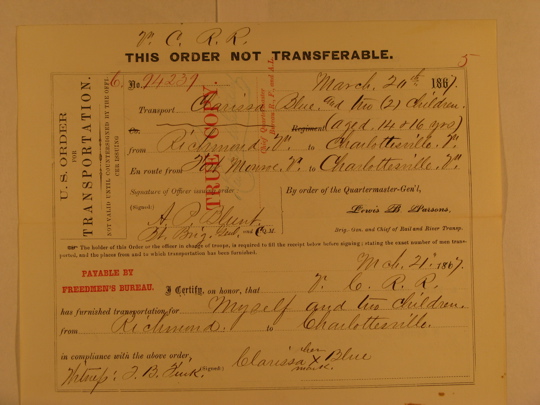 Va. C. R. R.
THIS ORDER NOT TRANSFERABLE.
5
U. S. ORDER
FOR
TRANSPORTATION.
NOT VALID UNTIL COUNTERSIGNED BY THE OFFICER ISSUING
6. No. 94239. March 20th 1867.
Transport Clarissa Blue and two (2) Children.
Regiment (aged 14 & 16 yrs)
from Richmond Va to Charlottesville Va
En route from Fort Monroe Va to Charlottesville Va
TRUE COPY.
Signature of Officer issuing order
By order of the Quartermaster-Gen'l,
(Signed:)
A. P. Blunt
Lewis B. Parsons,
Bt. Brig. Genl. and
Brig. Gen. and Chief of Rail and River Transp.
The holder of this Order or the officer in charge of troops, is required to fill the receipt below before signing; stating the exact number of men transported, and the places from and to which transportation has been furnished.
Mch. 21st 1867.
PAYABLE BY
FREEDMEN'S BUREAU.
I Certify, on honor, that V. C. R. R.
has furnished transportation for Myself and two Children.
from Richmond. to Charlottesville.
in compliance with the above order,
her
Clarissa X Blue
mark.
(Signed:)
Witness: